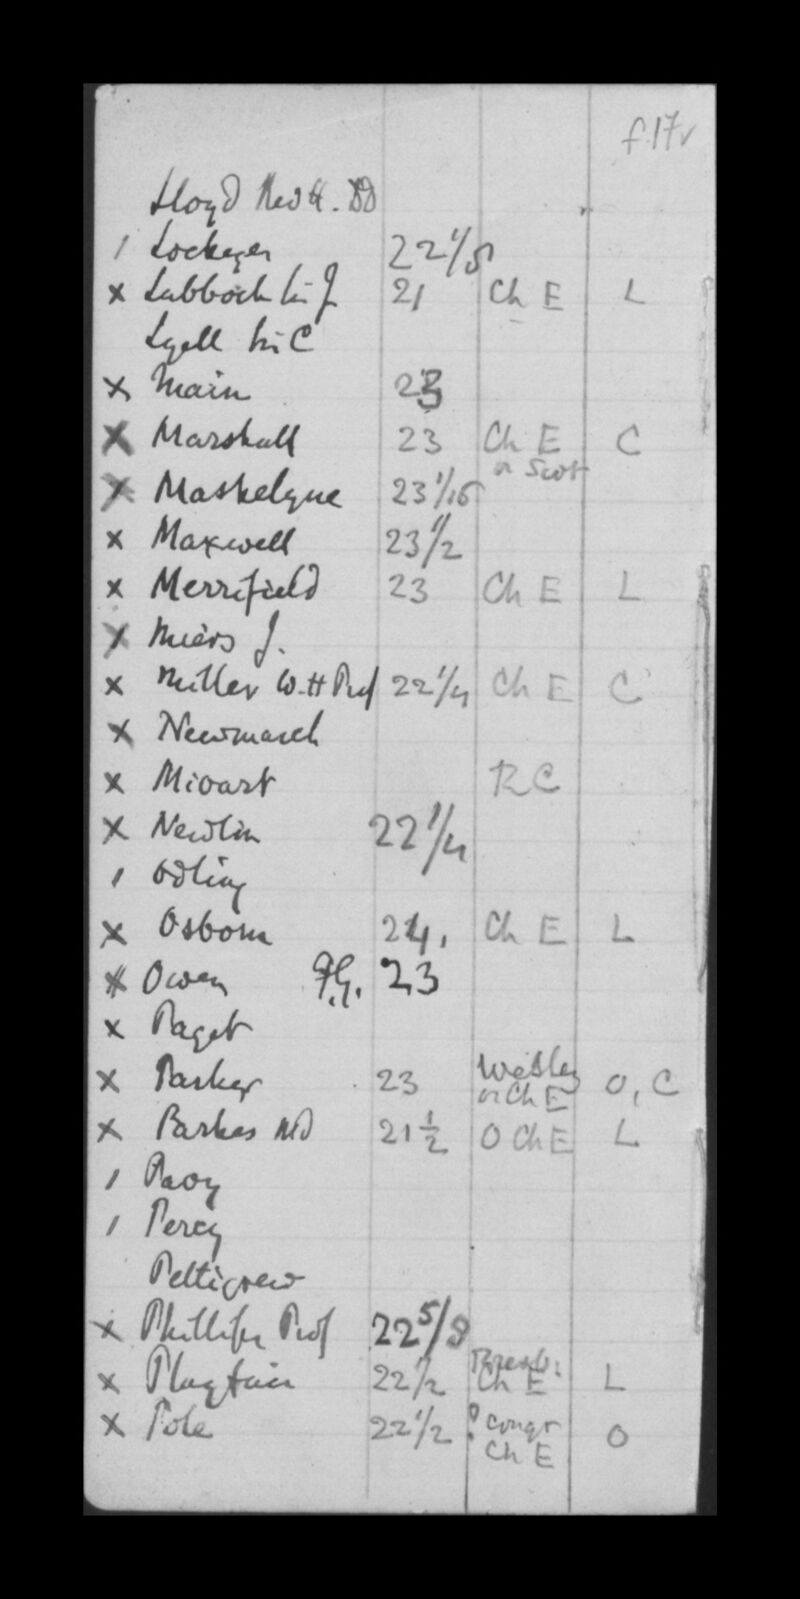 f.17v
Lloyd Rev H. DD
/ Lockyer 22 1/5
x Lubbock Sir J 21 Ch E L
Lyell Sir C
x Main 23
x Marshall 23 Ch E C
or Scot
x Maskelyne 23 1/16
x Maxwell 23 1/2
x Merrifield 23 Ch E L
x Miers J.
x Miller W.H Prof 22 1/4 Ch E C
x Newmarch
x Mivart R C
x Newton 22 1/4
/ Odling
x Osborn 24, Ch E L
x Owen 23
x Paget
x Parker 23 Wesley O, C
or Ch E
x Parkes MD 21 1/2 O Ch E L
/ Pavy
/ Percy
Pettigrew
x Phillips Prof 22 5/8
Presb:
x Playfair 22 1/2 Ch E L
x Pole 22 1/2 ? congr O
Ch E